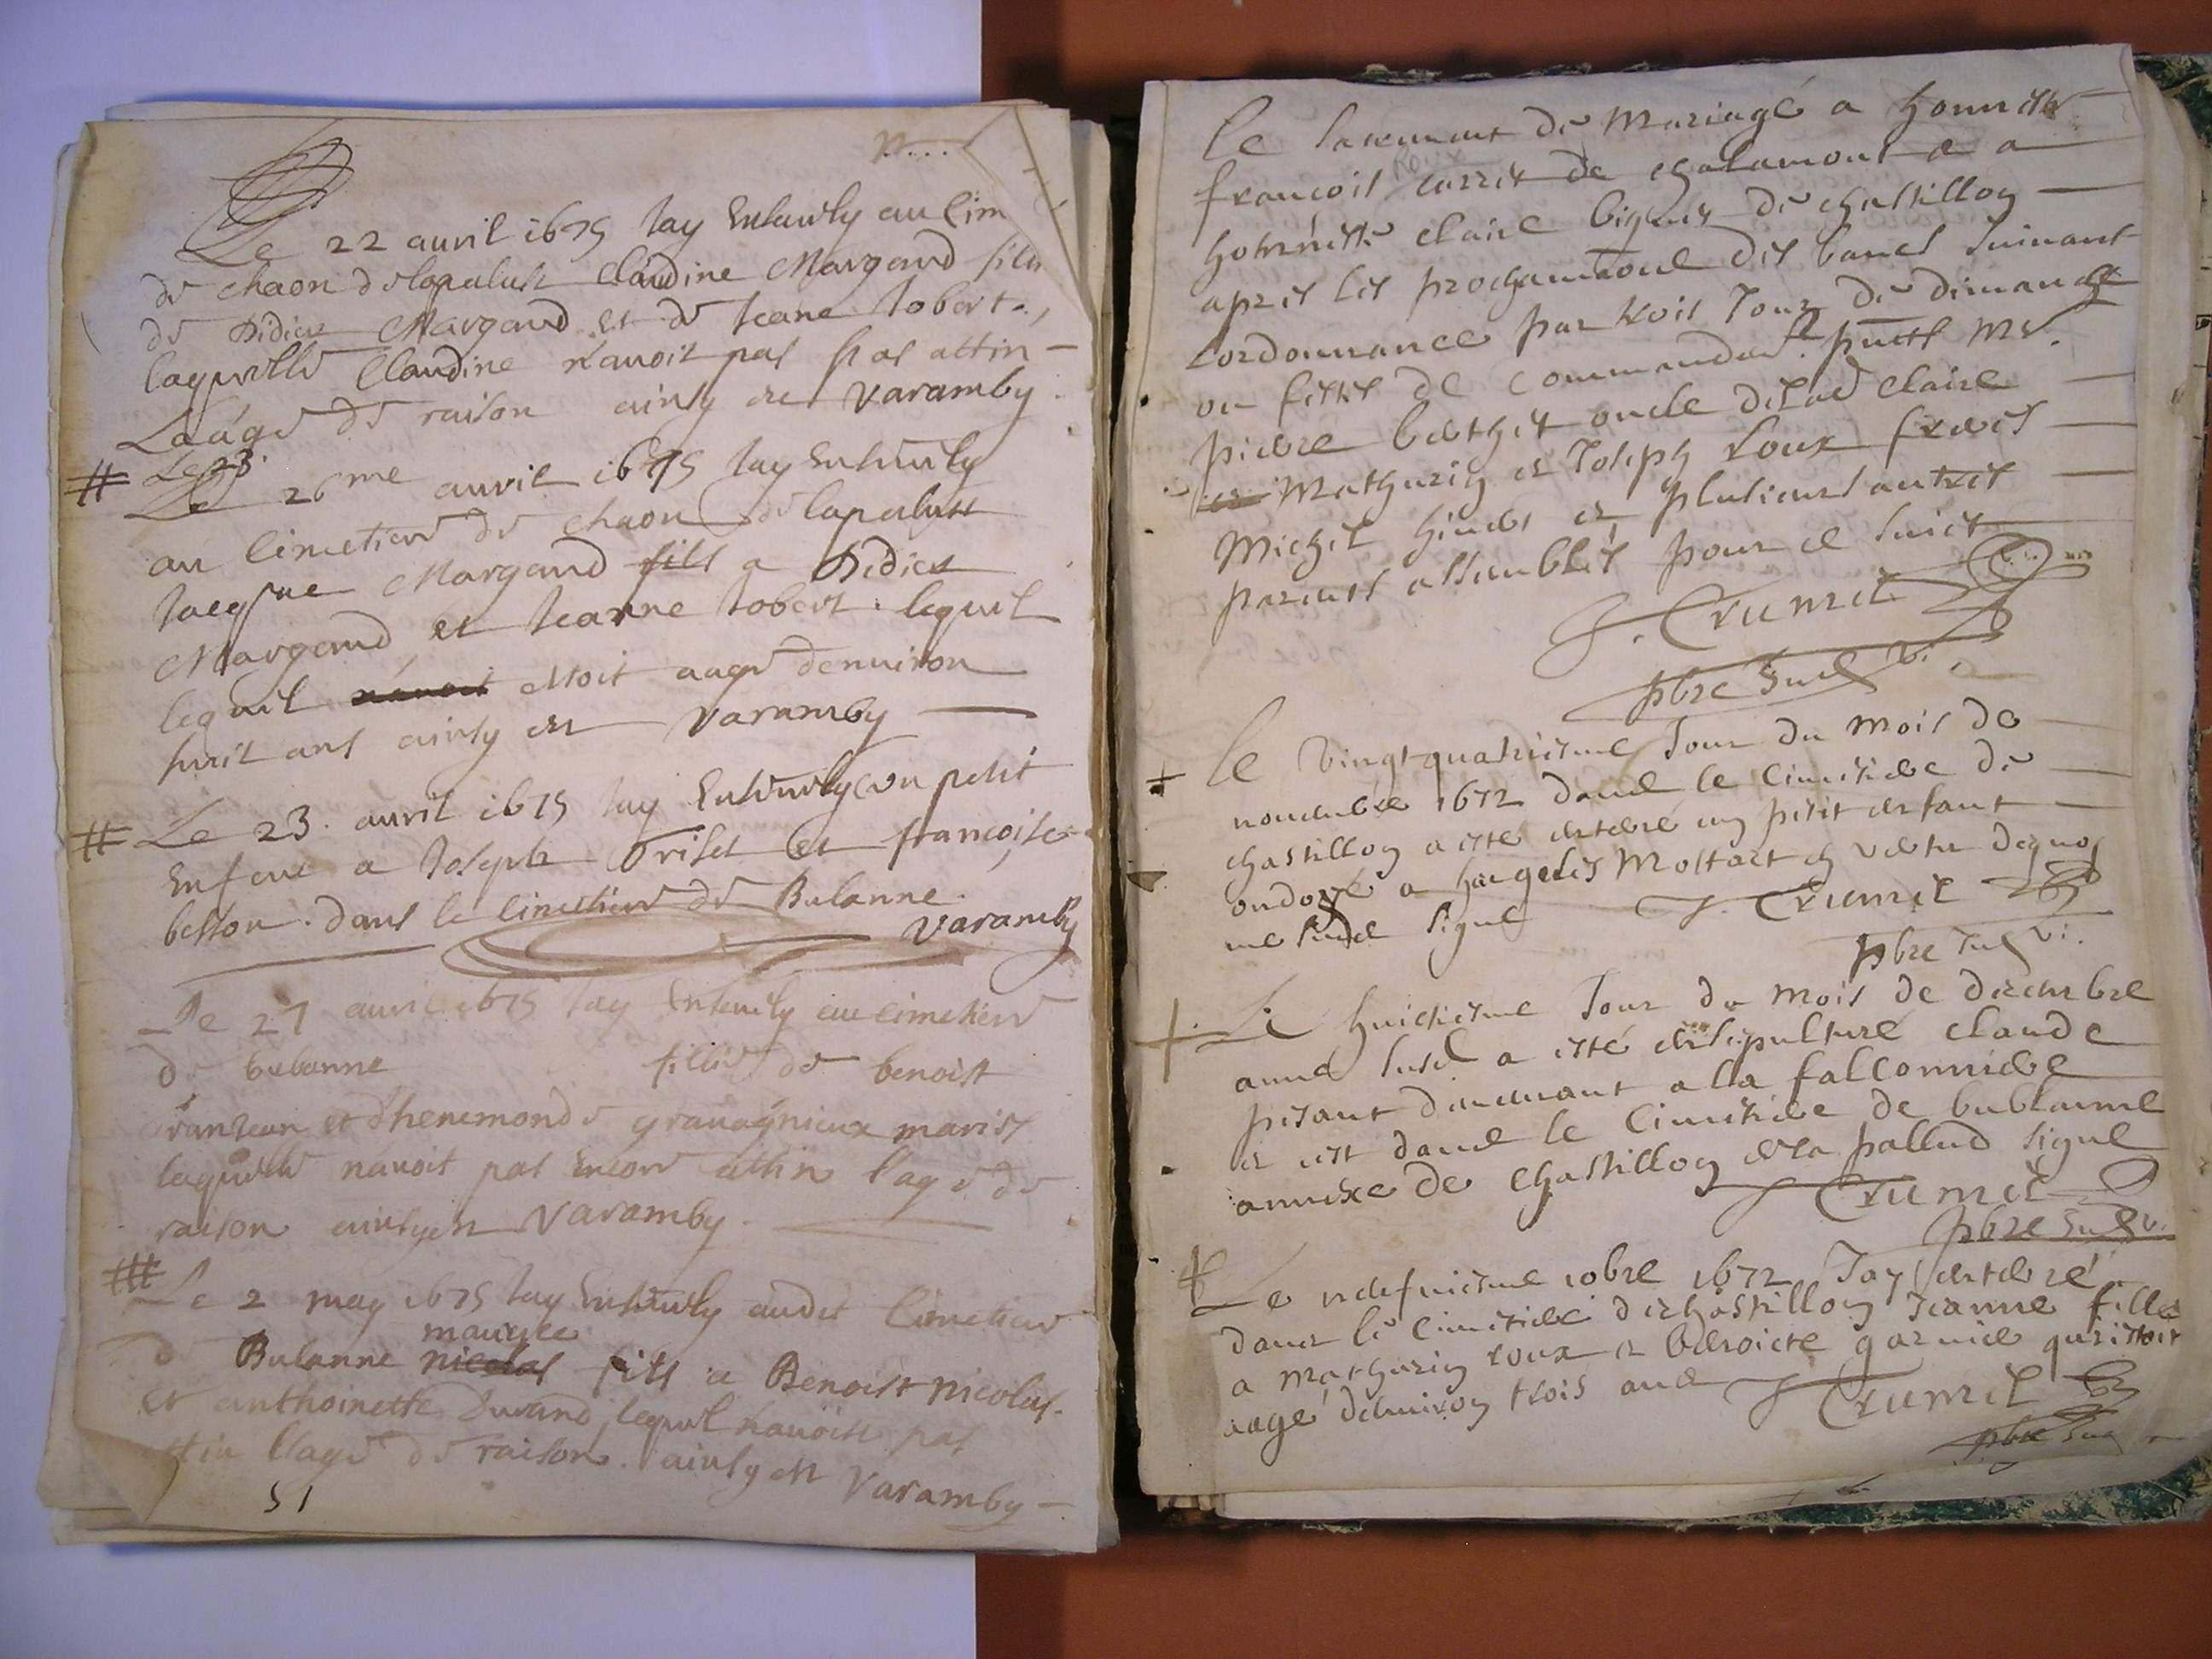 Le 22 auril 1675 Jay Enseuely au Cim
de chaon delapalust Claudine Margand fille
de Didier Margand et de Jeane Jobert.,
laquelle Claudine n'auoit pas attin
Laágé de raison ainsy est Varamby.
Le 23.
Le 26me auril 1675 Jay Enseuely
au Cimetiere de chaon de lapalust
Jacque Margand fils a Didier
Margand et Jeanne Jobert. lequel
lequel n'auoit estoit aagé denuiron
huit ans ainsy est Varamby
Le 23. auril 1675 Jay Enseuely un petit
Enfant a Joseph et francoise
besson. dans le Cimetiere de Bulanne.
Varamby
Le 27 auril 1675 Jay Enseuely au cimetiere
de bublanne fille de benoist
et d'henemonde grauagnieux mariés
laquelle n'auoit pas Encore attin l'age de
raison ainsy est Varamby.
Le 2 may 1675 Jay Enseuely audit Cimetiere
maurice
de Bulanne nicolas fils a Benoist nicolas.
et anthoinette Durand, lequel n'auoit pas
attin l'age de raison. ainsy est Varamby
51
le sacrement de Mariagé a honneste
Roux
francois de chalamont a a
honneste claire de chastillon
apres les proclamations des bancs suiuant
l'ordonnance par trois Jour de dimanche
ou festes de commandant. Mr.
pierre berthet oncle de lad claire
et Mathurin et Joseph roux freres
Michel et plusieurs autres
parents assemblés pour ce suiet
J. Crumel
pbre
le Vingt quatriesme Jour du mois de
nouembre 1672 dans le Cimitiere de
chastillon a esté enteré un petit enfant
ondoyé a Mostart en vertu dequoy
me signe J. Crumel
pbre
Le huictiesme Jour du mois de decembre
anné susd a esté ensepulturé claude
pesant demeurant a la falconniere
et est dans le Cimitiere de bublanne
annexe de chastillon de la pallud signe
J Crumel
pbre
Le neufuiesme xobre 1672 Jay enteré
dans le Cimitiere de chastillon Jeanne fille
a mathurin roux et benoicte garnier qui estoit
aagé denuiron trois ans J Crumel
pbre